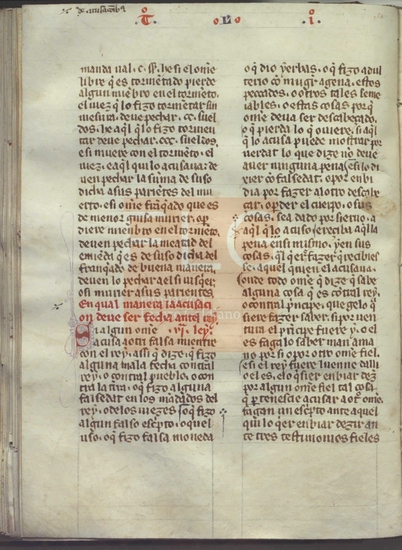 T. LO. I.
manda ual. c. ss. he si el ome
libre q̄ es tormētado pierde
algun miēbro en el tormēto,
el iuez q̄ lo fizo tormētar sin
mesura, deue pechar. cc. suel
dos. he aq̄l q̄ lo fizo tormen
tar deue pechar. ccc. sueldos.
esi muere con el tormēto, el
iuez, o aq̄l qui lo acusaua de
uen pechar la suma de suso
dicha asus pariētes del mu
erto, esi ome frāqado que es
de menor guisa muriere, o p̄
diere miēbro en el tormēto,
deuen pechar la meatad del
emiēda q̄ es de suso dicha del
franq̄ado de buena manera,
deuen lo pechar ael si uisq̄er
o si muriere asus parientes
en qual manera la acusaci
on deue ser fecha antel rey.
Si algun ome .VI. ley.
acusa a otri falsa mientre
con el rey, assi q̄ dize, q̄ fizo
alguna mala fecha contral
rey, o contral pueblo, o con
tra la tr̄ra, o q̄ fizo alguna
falsedat en los mādados del
rey, o de los iuezes, o q̄ fizo
algun falso escp̄to, o q̄ el
uso, o q̄ fizo falsa moneda
o q̄ dio yerbas, o q̄ fizo adul
terio cō mugr̄ agena, estos
peccados, o otros tales seme
iables, o estas cosas por q̄
ome deua ser descabeçado,
o q̄ pierda lo q̄ ouiere, si aq̄l
q̄ lo acusa puede mostrar por
uerdat lo que dize no deue
auer ninguna pena, esi lo di
xere cō falsedat, o por enbi
dia por fazer al otro descabe
çar, o p̄der el cuerpo, o sus
cosas, sea dado por sieruo, a
aq̄l q̄ lo acuso, e reciba aq̄lla
pena en si mismo, y en sus
cosas, q̄l q̄er fazer q̄ recibies
se, aquel quien el acusaua,
onde todo ome q̄ dize q̄ sabe
alguna cosa q̄ es contral rey,
o contral prīcipe, que gelo q̄
siere fazer saber, si por uen
tura el prīcipe fuere y, o el
es fagalo saber man amā
no por si o por otro ome fiel,
esi el rey fuere luenne dalli
o el es, e lo q̄siere enbiar dezir
por algun ome fiel tal cosa
q̄l p̄tenesce acusar a ot̄ ome,
fagan un escp̄to ante aquel
qui lo q̄er enbiar dezir, an
te tres testimonios fieles